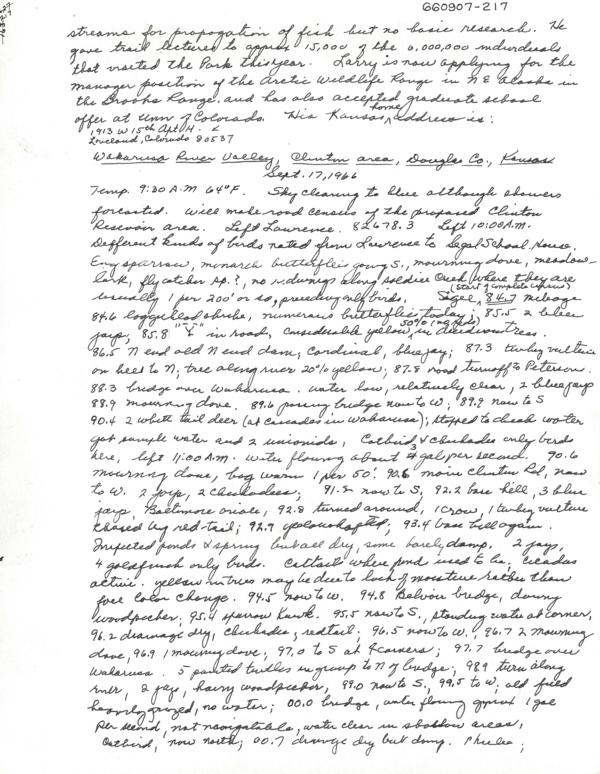 660907-217
streams for propogation of fish but no basic research. He
gave trail lectures to approx 15,000 of the 6,000,000 individuals
that visited the Park this year. Larry is now applying for the
manager position of the Arctic Wildlife Range in NE Alaska in
the Brooks Range, and has also accepted graduate school
offer at Univ of Colorado. His Kansas home address is:
1913 W 15th Apt H.
Loveland, Colorado 80537
Wakarusa River Valley, Clinton area, Douglas Co., Kansas
Sept. 17, 1966
Temp. 9:30 A.M 64°F. Sky clearing to blue although showers
forcasted. Will make road census of the proposed Clinton
Resevoir area. Left Lawrence. 82678.3 Left 10:00 A.M.
Different kinds of birds noted from Lawrence to Segal School House.
Eng sparrow, monarch butterflies going S., mourning dove, meadow-
lark, flycatcher sp.?, no along Soldier Creek where they are
usually 1 per 200' or so, preceeding only birds. (Start of complete census) Sigel, 84.7 mileage
84.6 loggerhead shrike, numerous butterflies today; 85.5 2 blue
jays; 85.8 "T" in road, considerable yellow, 50% in deciduous trees.
86.5 N end old N end dam, Cardinal, bluejay; 87.3 turkey vulture
on hees to N; tree along river 20% yellow; 87.8 road turnoff to Peterson.
88.3 bridge over Wakarusa. water low, relatively clear, 2 bluejays
88.9 mourning dove. 89.6 passing bridge now to W; 89.9 now to S
90.4 2 white tail deer (at cascades in Wakarusa); stopped to check water
got sample water and 2 unionids, Catbird & 3 chickadees only birds
here, left 11:00 A.M. Water flowing about 4 gal per second. 90.6
mourning dove, bag worm 1 per 50'. 90.6 main Clinton Rd, now
to W. 2 jays, 2 Chickadees; 91.2 now to S, 92.2 base hill, 3 blue
jays, Baltimore oriole, 92.8 turned around, 1 crow, 1 turkey vulture
chased by red-tail; 92.9 yellowshafted; 93.4 base hill again.
Inspected ponds & spring but all dry, some barely damp. 2 jays,
4 goldfinch only birds. Cattails where pond used to be, cicadas
active. yellow in trees may be due to lack of moisture rather than
fall color change. 94.5 now to W. 94.8 Belvoir bridge, downy
woodpecker; 95.4 sparrow hawk. 95.5 now to S., standing water at corner,
96.2 drainage dry, Chickadee, redtail; 96.5 now to W., 96.7 2 mourning
dove, 96.9 1 mourning dove; 97.0 to S at 4 corners; 97.7 bridge over
Wakarusa. 5 painted turtles in group to N of bridge; 98.9 turn along
river, 2 jays, hairy woodpecker, 99.0 now to S., 99.5 to W; old field
heavily grazed, no water; 00.0 bridge, water flowing approx 1 gal
per second, not navigatable, water clear in shallow areas,
Catbird, now north; 00.7 drainage dry but damp. Phoebe;